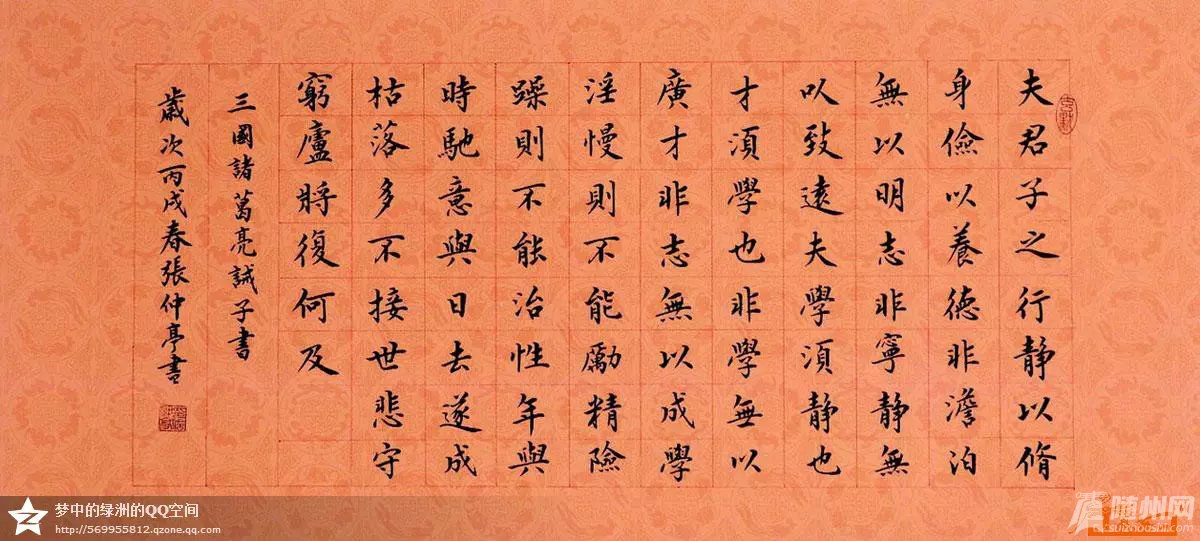 夫君子之行静以脩
身儉以養德非澹泊
無以明志非寧静無
以致遠夫學須静也
才須學也非學無以
廣才非志無以成學
淫慢則不能勵精險
躁則不能治性年與
時馳意與日去遂成
枯落多不接世悲守
窮廬將復何及
三國諸葛亮誡子書
歲次丙戌春張仲亭書
梦中的绿洲的QQ空间
http://569955812.qzone.qq.com
随州网